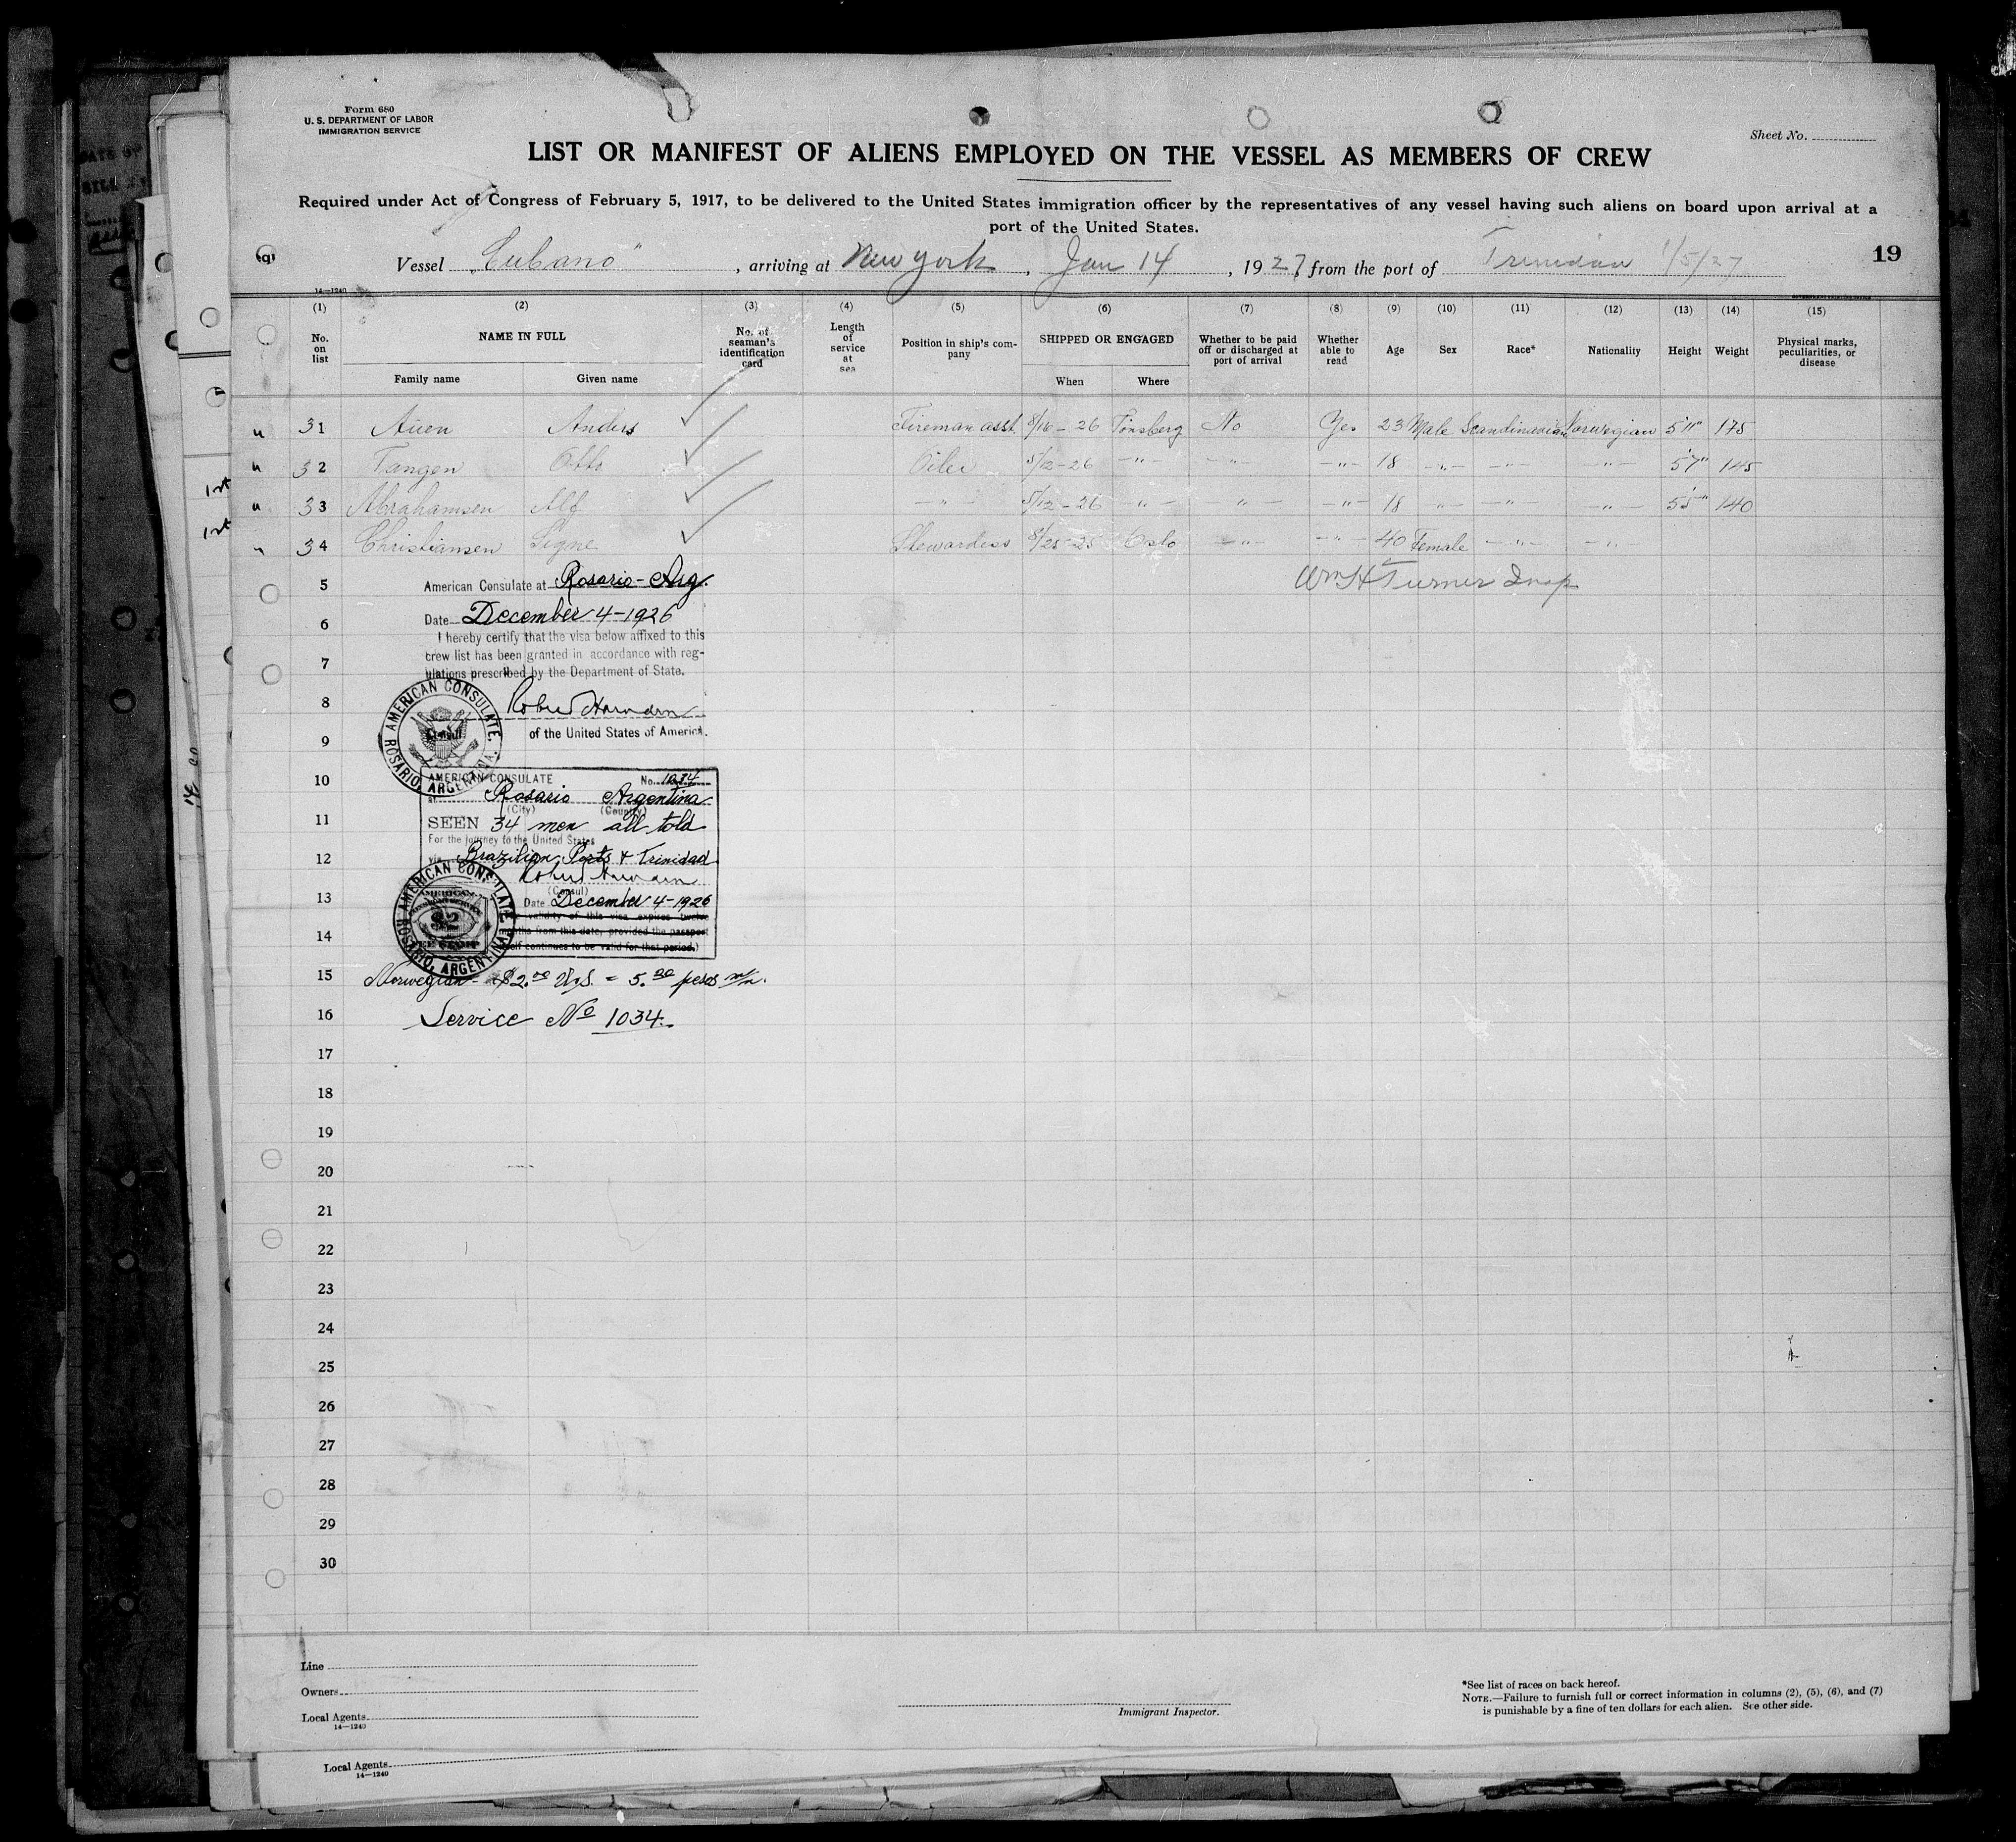 Form 680
U. S. DEPARTMENT OF LABOR
IMMIGRATION SERVICE
Sheet No.
LIST OR MANIFEST OF ALIENS EMPLOYED ON THE VESSEL AS MEMBERS OF CREW
Required under Act of Congress of February 5, 1917, to be delivered to the United States immigration officer by the representatives of any vessel having such aliens on board upon arrival at a
port of the United States.
Vessel "Cubano", arriving at New York, Jan 14, 1927, from the port of Trinidad 1/5/27
19
14—1240
(1) (2) (3) (4) (5) (6) (7) (8) (9) (10) (11) (12) (13) (14) (15)
No. on list NAME IN FULL No. of seaman's identification card Length of service at sea Position in ship's company SHIPPED OR ENGAGED Whether to be paid off or discharged at port of arrival Whether able to read Age Sex Race* Nationality Height Weight Physical marks, peculiarities, or disease
Family name Given name When Where
" 31 Auen Anders Fireman asst. 8/16-26 Tönsberg No Yes 23 Male Scandinavian Norwegian 5'11" 175
" 32 Tangen Otto Oiler 5/12-26 -"- -"- -"- 18 -"- -"- -"- 5'7" 145
1st " 33 Abrahamsen Alf -"- 5/12-26 -"- -"- -"- 18 -"- -"- -"- 5'5" 140
1st " 34 Christiansen Signe Stewardess 8/25-25 Oslo -"- -"- 40 Female -"- -"-
5 American Consulate at Rosario - Arg. Wm H Turner Insp
6 Date December 4-1926
I hereby certify that the visa below affixed to this
crew list has been granted in accordance with reg-
7 ulations prescribed by the Department of State.
8
9 of the United States of America.
AMERICAN CONSULATE. ROSARIO, ARGENTINA.
Consul
10 AMERICAN CONSULATE No. 1034
at Rosario Argentina
(City) (Country)
11 SEEN 34 men all told
For the journey to the United States
12 via Brazilian Ports & Trinidad
(Consul)
13 Date December 4-1926
The validity of this visa expires twelve
14 months from this date, provided the passport
itself continues to be valid for that period.)
AMERICAN CONSULATE ROSARIO, ARGENTINA
$2
FEE STAMP
15 Norwegian - $2.00 U.S. = 5.00 pesos m/n.
16 Service No 1034.
17
18
19
20
21
22
23
24
25
26
27
28
29
30
Line
Owners
Local Agents
14—1240
Immigrant Inspector.
*See list of races on back hereof.
NOTE.—Failure to furnish full or correct information in columns (2), (5), (6), and (7)
is punishable by a fine of ten dollars for each alien. See other side.
Local Agents
14—1240